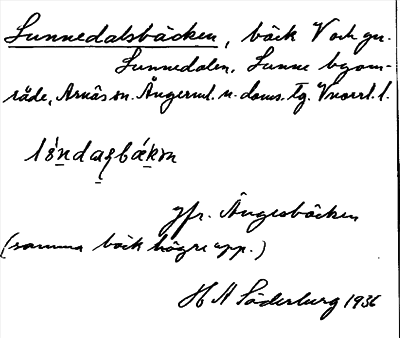 Sunnedalsbäcken, bäck V och gm.
Sunnedalen, Sunne byom-
råde, Arnäs sn. Ångerml. n. doms. tg. Vnorrl. l.
jfr. Ängesbäcken
(samma bäck högre upp.)
H A Söderburg 1936